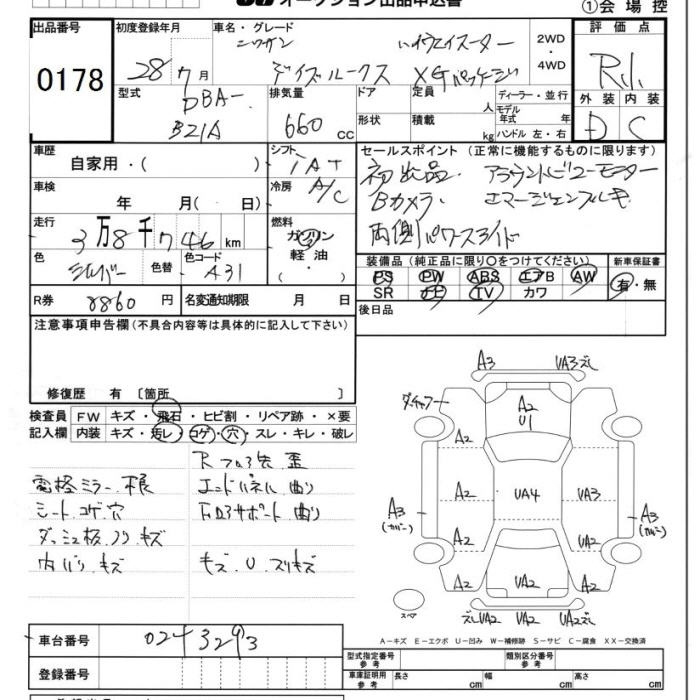 オークション出品申込書
①会場控
出品番号
0178
初度登録年月
28年7月
車名・グレード
ニッサン ハイウェイスター
デイズルークス XGパッケージ
2WD
・
4WD
評価点
R1
外装 内装
D C
型式
DBA-
B21A
排気量
660 cc
ドア
形状
定員 人
積載 kg
ディーラー・並行
モデル年式 年
ハンドル 左・右
車歴
自家用・( )
シフト
IAT
車検
年 月( 日)
冷房
A/C
走行
3万8千746km
燃料
ガソリン
軽油
色
シルバー
色替
色コード
A31
R券
8860円
名変通知期限 月 日
セールスポイント (正常に機能するものに限ります)
初出品. アラウンドビューモニター
Bカメラ. エマージェンブレーキ
両側パワースライド
装備品(純正品に限り○をつけてください)
PS PW ABS エアB AW
SR ナビ TV カワ
新車保証書
有・無
後日品
注意事項申告欄(不具合内容等は具体的に記入して下さい)
修復歴 有 〔箇所 〕
検査員
記入欄
FW キズ・飛石・ヒビ割・リペア跡・×要
内装 キズ・汚レ・コゲ・穴・スレ・キレ・破レ
電格ミラー.
シート.コゲ.穴
エンドパネル 曲り
サポート 曲り
ダッシュ板.ノリ.キズ
内バリ.キズ
キズ.U.スリキズ
A3 UA3ズレ
A2
U1
A2 A2
A2 UA4 UA3
A3
(カバー)
A3
(カバー)
A2 UA2
A2 UA2 A2
ズレUA2 UA2 UA2ズレ
スペア
A-キズ E-エクボ U-凹み W-補修跡 S-サビ C-腐食 XX-交換済
車台番号
0243293
登録番号
型式指定番号
参考
類別区分番号
参考
車庫証明用
参考
長さ cm 幅 cm 高さ cm